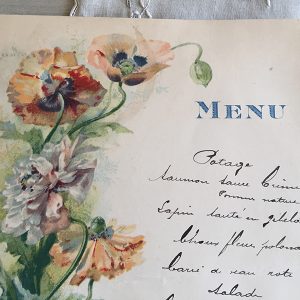 MENU
Potage
saumon sauce
Pommes nature
Lapin sauté en
Choux fleurs polonai
carré de veau roti
Salad